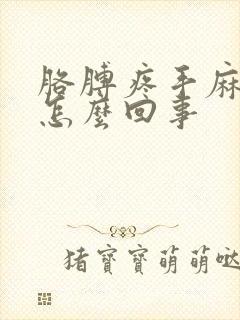 胳膊疼手麻
怎麼回事
猪寶寶萌萌哒